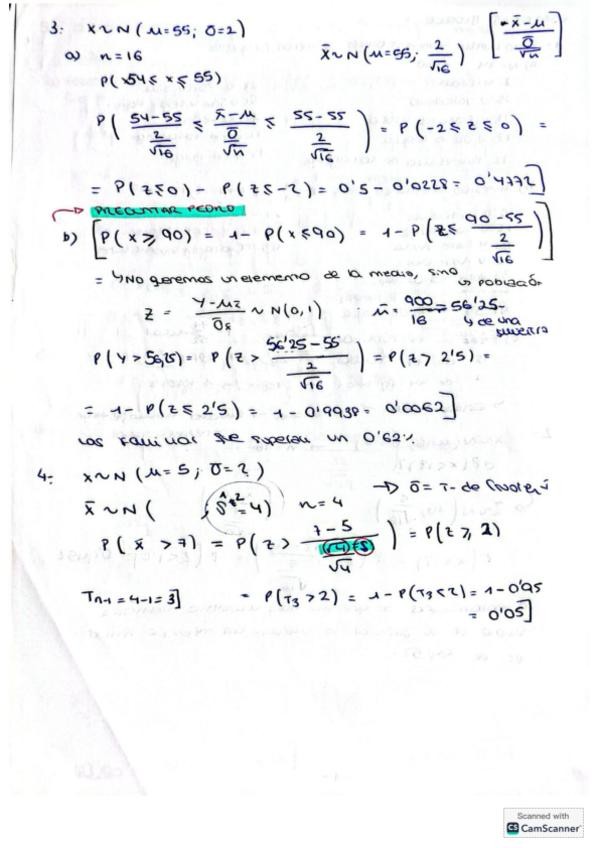 3: X~N(μ=55; σ=2)
a) n=16 X̄~N(μ=55; 2/√16) [X̄-μ / σ/√n]
P(54≤x≤55)
P( 54-55 / 2/√16 ≤ X̄-μ / σ/√n ≤ 55-55 / 2/√16 ) = P(-2≤Z≤0) =
= P(Z≤0) - P(Z≤-2) = 0'5 - 0'0228 = 0'4772]
→ PREGUNTAR PEDRO
b) [P(x≥90) = 1 - P(x≤90) = 1 - P(Z≤ 90-55 / 2/√16 )]
= No queremos un elemento de la media, sino
↳ Población
Z = Y-μz / σs ~ N(0,1) 900/16 = 56'25
↳ de una muestra
P(Y>56,25) = P(Z> 56'25-55 / 2/√16 ) = P(Z>2'5) =
= 1 - P(Z≤2'5) = 1 - 0'9938 = 0'0062]
Las se superan un 0'62%
4: X~N(μ=5; σ=?)
X̄~N( ; Ŝ²=4) n=4 → σ = T- de
P(X̄ >7) = P(Z> 7-5 / √4 / √4 ) = P(Z≥2)
Tn-1=4-1=3] = P(T3>2) = 1 - P(T3≤2) = 1-0'95
= 0'05]
Scanned with
CS CamScanner